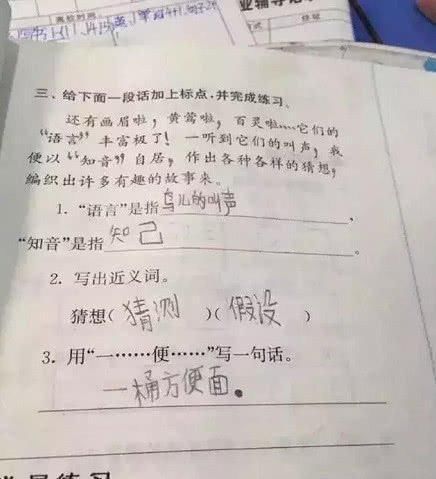 离校时间
业辅导记
三、给下面一段话加上标点,并完成练习。
还有画眉啦，黄莺啦，百灵啦……它们的
“语言”丰富极了！一听到它们的叫声，我
便以“知音”自居，作出各种各样的猜想，
编织出许多有趣的故事来。
1. “语言”是指鸟儿的叫声，
“知音”是指知己。
2. 写出近义词。
猜想(猜测)(假设)
3. 用“一……便……”写一句话。
一桶方便面。